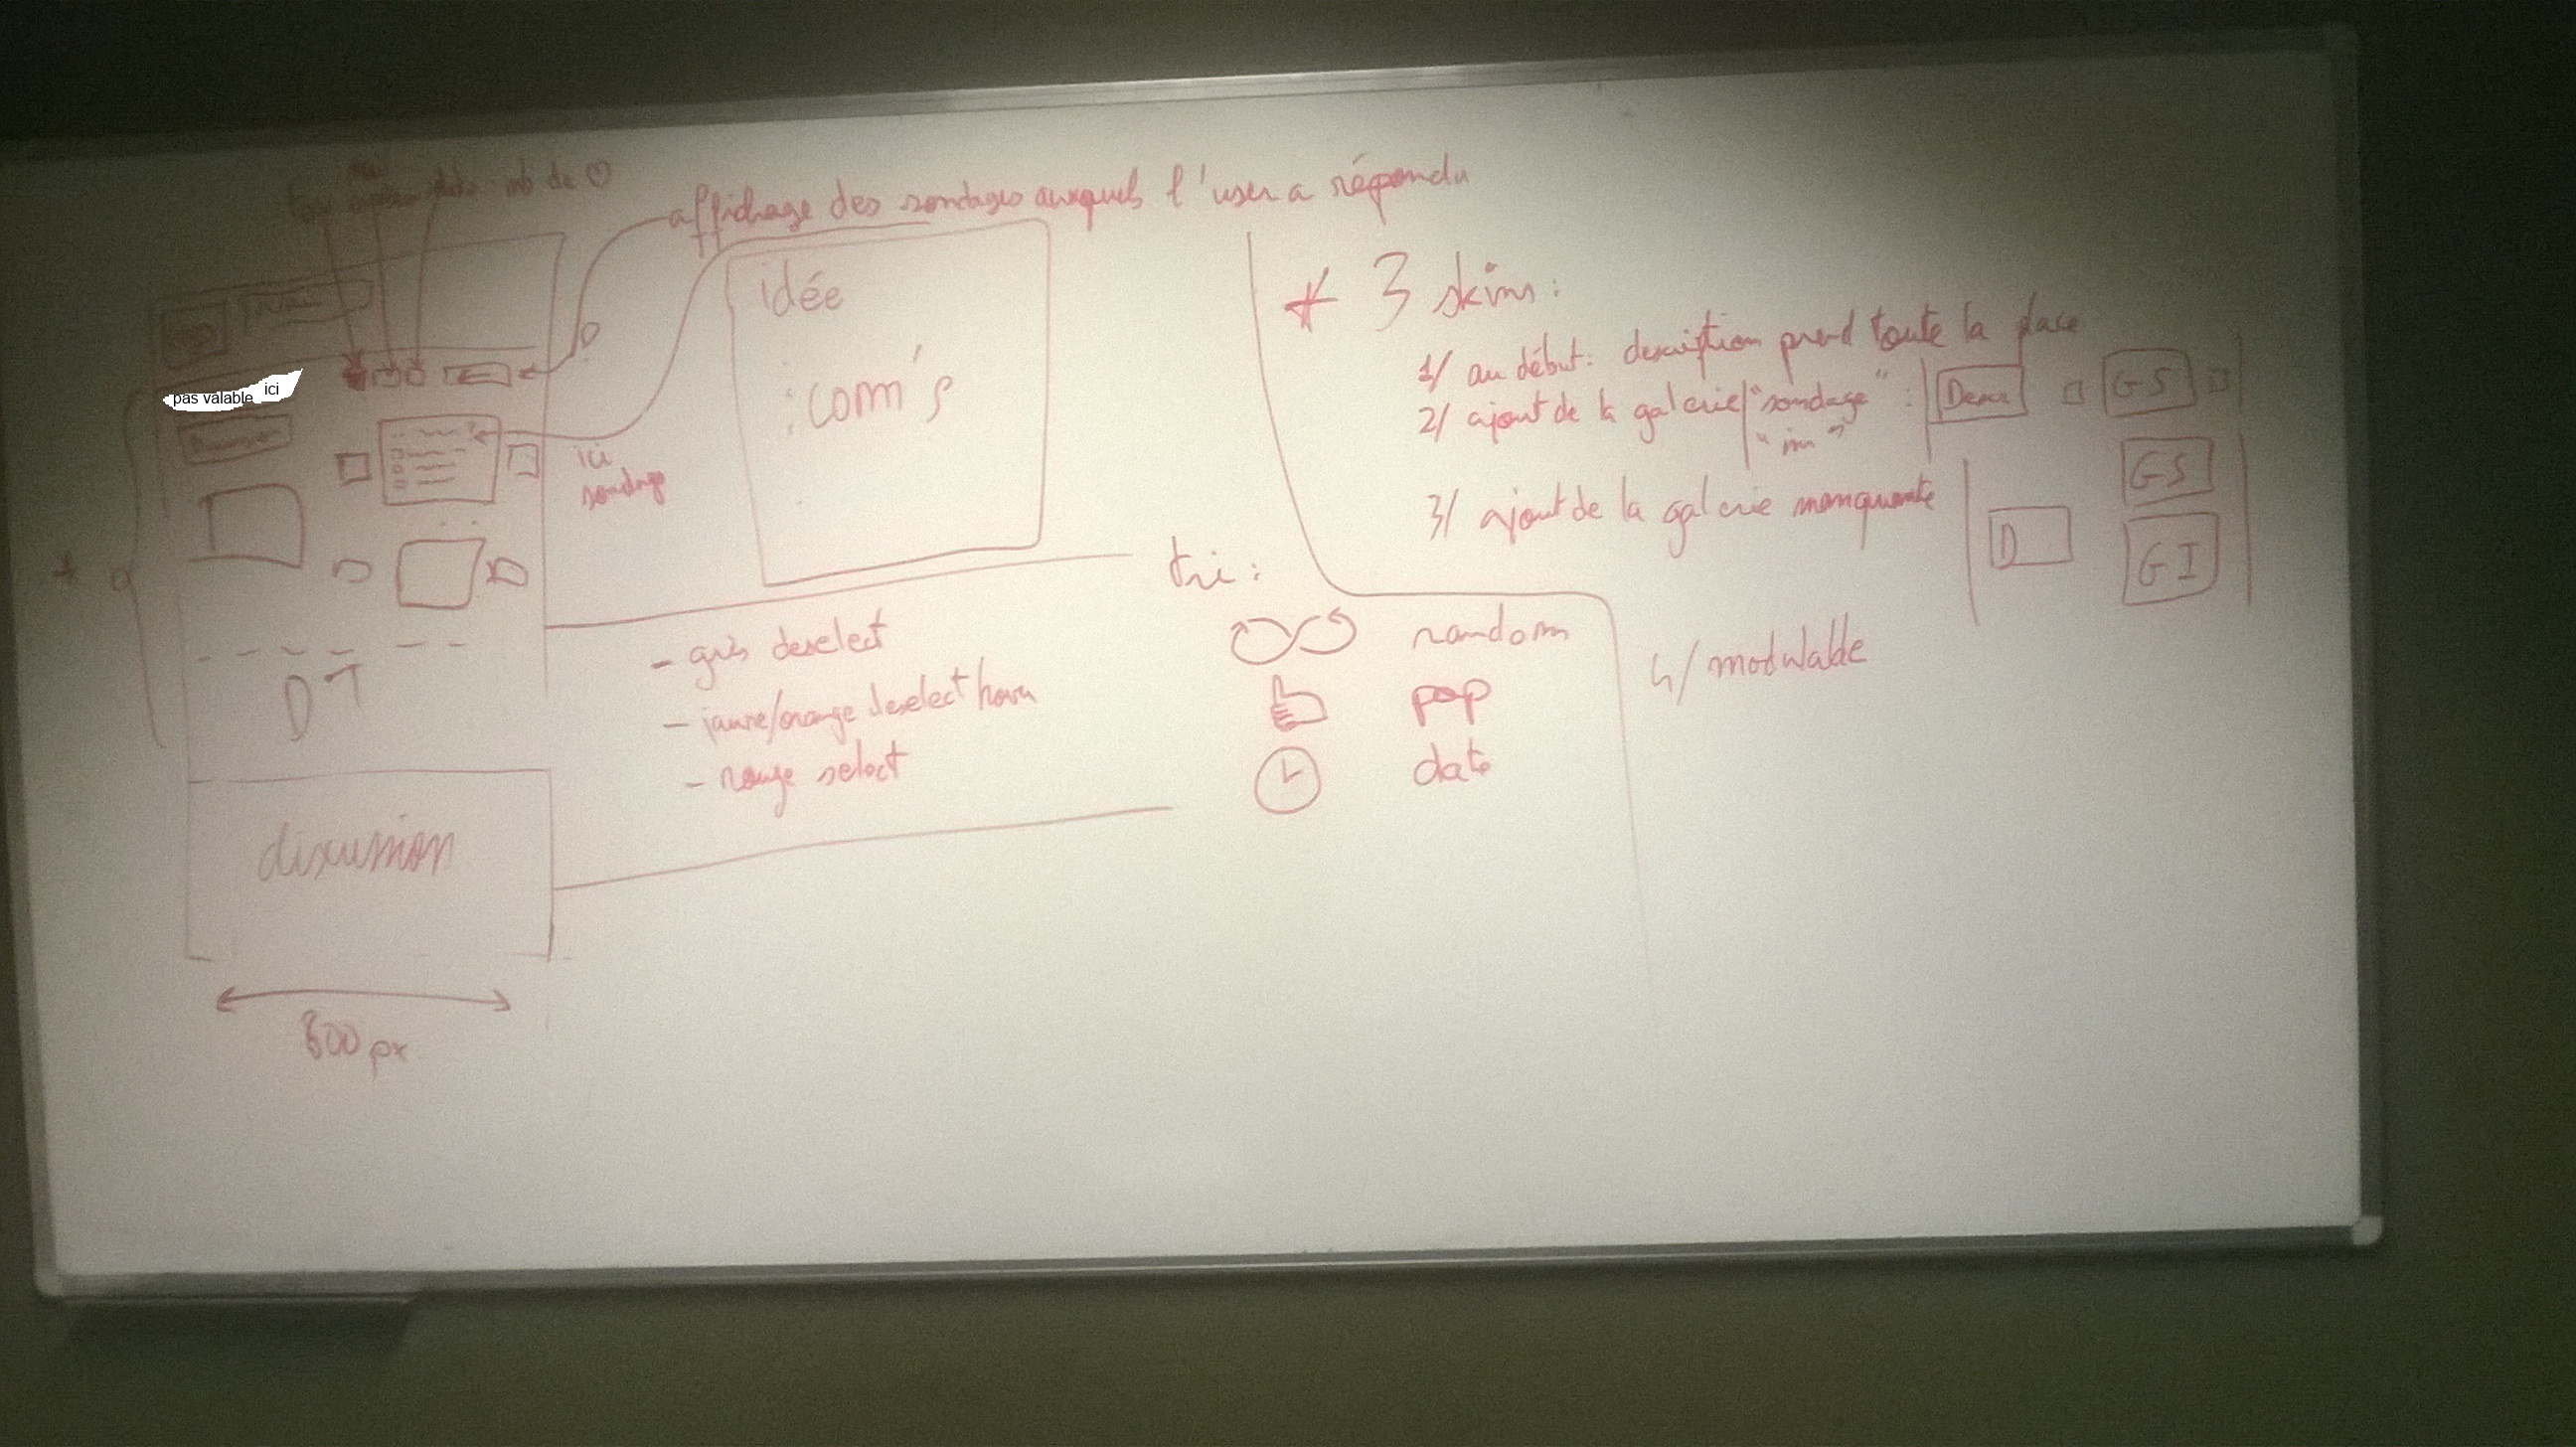 nb de
affichage des sondages auxquels l'user a répondu
pas valable ici
ici
sondage
idée
: com's
DT
discussion
800 px
- gris deselect
- jaune/orange deselect hover
- rouge select
tri :
random
pop
date
* 3 skins :
1/ au début : description prend toute la place
2/ ajout de la galerie "sondage" :
Descr
GS
3/ ajout de la galerie manquante
D
GS
GI
4/ modulable